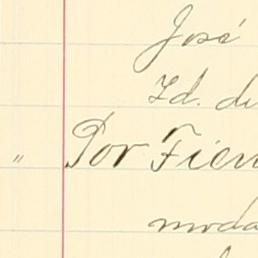 José
Id. du
" Por Tien
moda